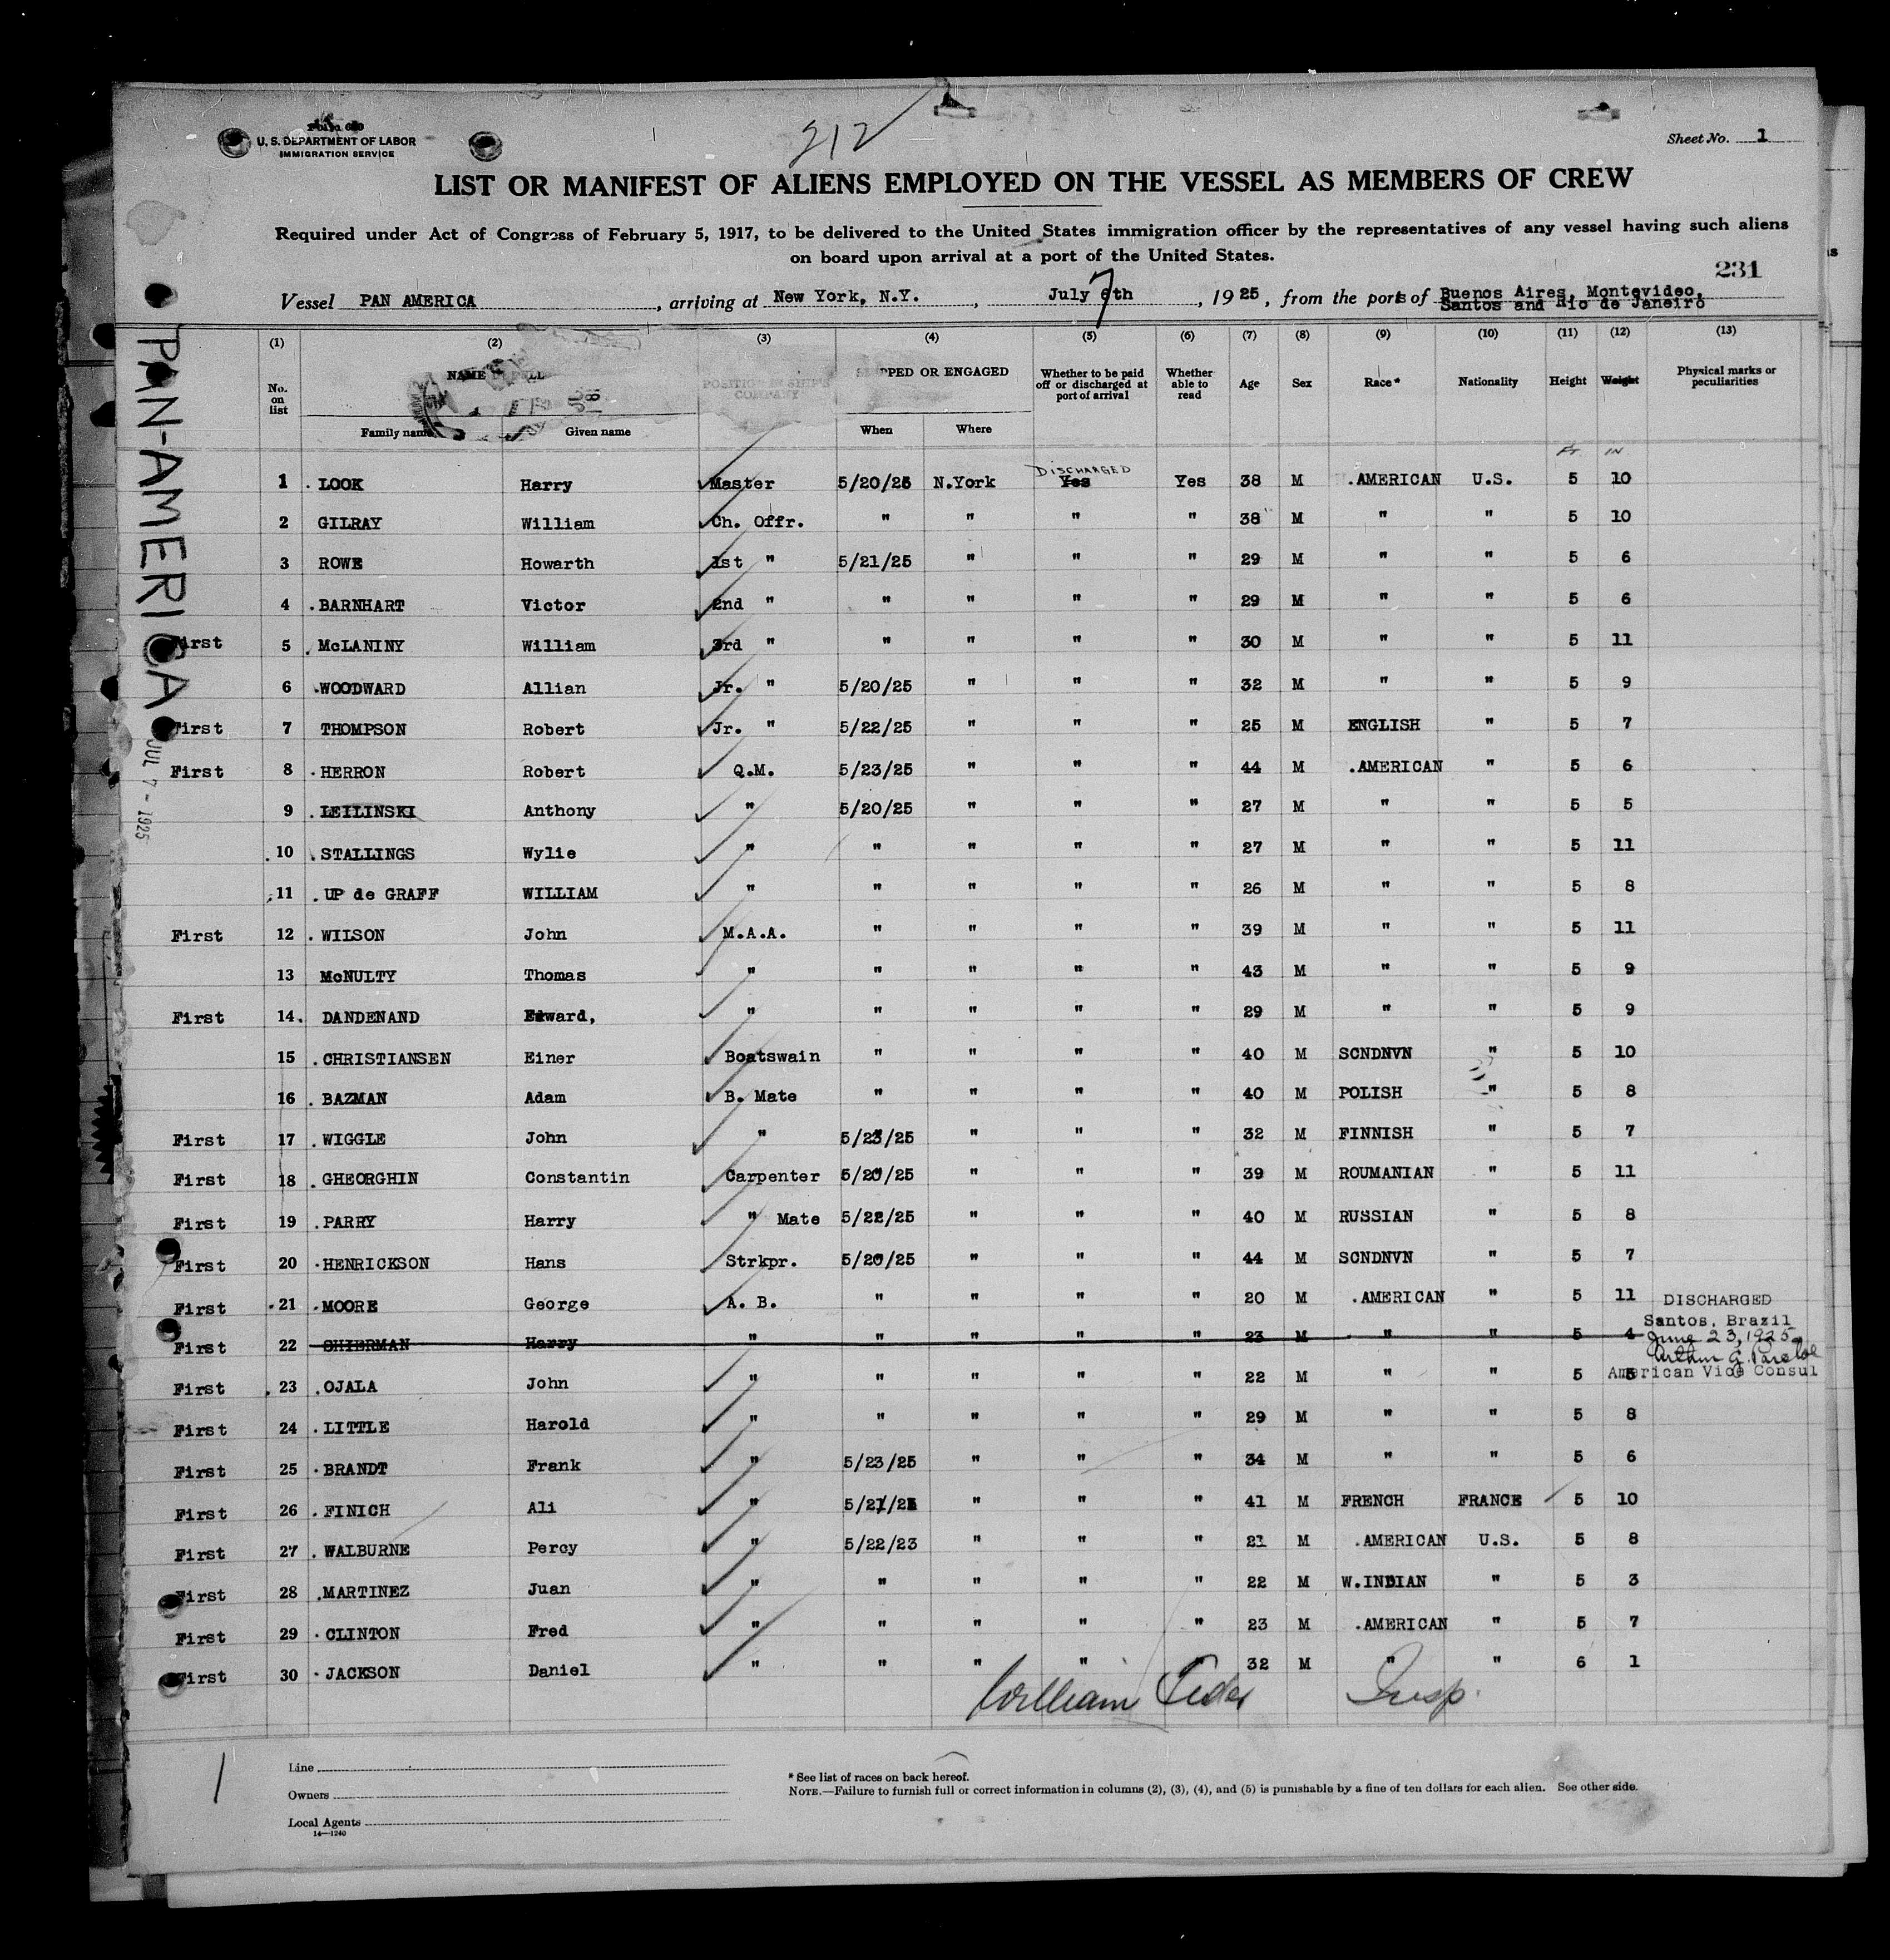 Form 680
U. S. DEPARTMENT OF LABOR
IMMIGRATION SERVICE
212
Sheet No. 1
LIST OR MANIFEST OF ALIENS EMPLOYED ON THE VESSEL AS MEMBERS OF CREW
Required under Act of Congress of February 5, 1917, to be delivered to the United States immigration officer by the representatives of any vessel having such aliens
on board upon arrival at a port of the United States.
231
Vessel PAN AMERICA, arriving at New York, N.Y., July 6th 7, 1925, from the ports of Buenos Aires, Montevideo,
Santos and Rio de Janeiro
PAN-AMERICA
JUL 7 - 1925
(1) (2) (3) (4) (5) (6) (7) (8) (9) (10) (11) (12) (13)
No. on list NAME IN FULL POSITION IN SHIP'S COMPANY SHIPPED OR ENGAGED Whether to be paid off or discharged at port of arrival Whether able to read Age Sex Race* Nationality Height Weight Physical marks or peculiarities
Family name Given name When Where
Ft. IN
DISCHARGED
1 . LOOK Harry Master 5/20/25 N.York Yes Yes 38 M .AMERICAN U.S. 5 10
2 GILRAY William Ch. Offr. " " " " 38 M " " 5 10
3 ROWE Howarth 1st " 5/21/25 " " " 29 M " " 5 6
4 . BARNHART Victor 2nd " " " " " 29 M " " 5 6
First 5 . McLANINY William 3rd " " " " " 30 M " " 5 11
6 .WOODWARD Allian Jr. " 5/20/25 " " " 32 M " " 5 9
First 7 THOMPSON Robert Jr. " 5/22/25 " " " 25 M ENGLISH " 5 7
First 8 . HERRON Robert Q.M. 5/23/25 " " " 44 M .AMERICAN " 5 6
9 . LEILINSKI Anthony " 5/20/25 " " " 27 M " " 5 5
. 10 . STALLINGS Wylie " " " " " 27 M " " 5 11
. 11 . UP de GRAFF WILLIAM " " " " " 26 M " " 5 8
First 12 . WILSON John M.A.A. " " " " 39 M " " 5 11
13 McNULTY Thomas " " " " " 43 M " " 5 9
First 14. DANDENAND Edward, " " " " " 29 M " " 5 9
15 . CHRISTIANSEN Einer Boatswain " " " " 40 M SCNDNVN " 5 10
16 . BAZMAN Adam B. Mate " " " " 40 M POLISH " 5 8
First 17 . WIGGLE John " 5/23/25 " " " 32 M FINNISH " 5 7
First 18 . GHEORGHIN Constantin Carpenter 5/20/25 " " " 39 M ROUMANIAN " 5 11
First 19 . PARRY Harry " Mate 5/22/25 " " " 40 M RUSSIAN " 5 8
First 20 . HENRICKSON Hans Strkpr. 5/20/25 " " " 44 M SCNDNVN " 5 7
First . 21 . MOORE George A. B. " " " " 20 M .AMERICAN " 5 11
First 22 SHIERMAN Harry " " " " " 23 M " " 5 4
DISCHARGED
Santos, Brazil
June 23, 1925
Arthur G.
American Vice Consul
First . 23 . OJALA John " " " " " 22 M " " 5 5
First 24 . LITTLE Harold " " " " " 29 M " " 5 8
First 25 . BRANDT Frank " 5/23/25 " " " 34 M " " 5 6
First 26 . FINICH Ali " 5/21/25 " " " 41 M FRENCH FRANCE 5 10
First 27 . WALBURNE Percy " 5/22/23 " " " 21 M .AMERICAN U.S. 5 8
First 28 .MARTINEZ Juan " " " " " 22 M W.INDIAN " 5 3
First 29 . CLINTON Fred " " " " " 23 M .AMERICAN " 5 7
First 30 . JACKSON Daniel " " " " " 32 M " " 6 1
William Insp.
1
Line
Owners
Local Agents
14—1240
* See list of races on back hereof.
NOTE.—Failure to furnish full or correct information in columns (2), (3), (4), and (5) is punishable by a fine of ten dollars for each alien. See other side.